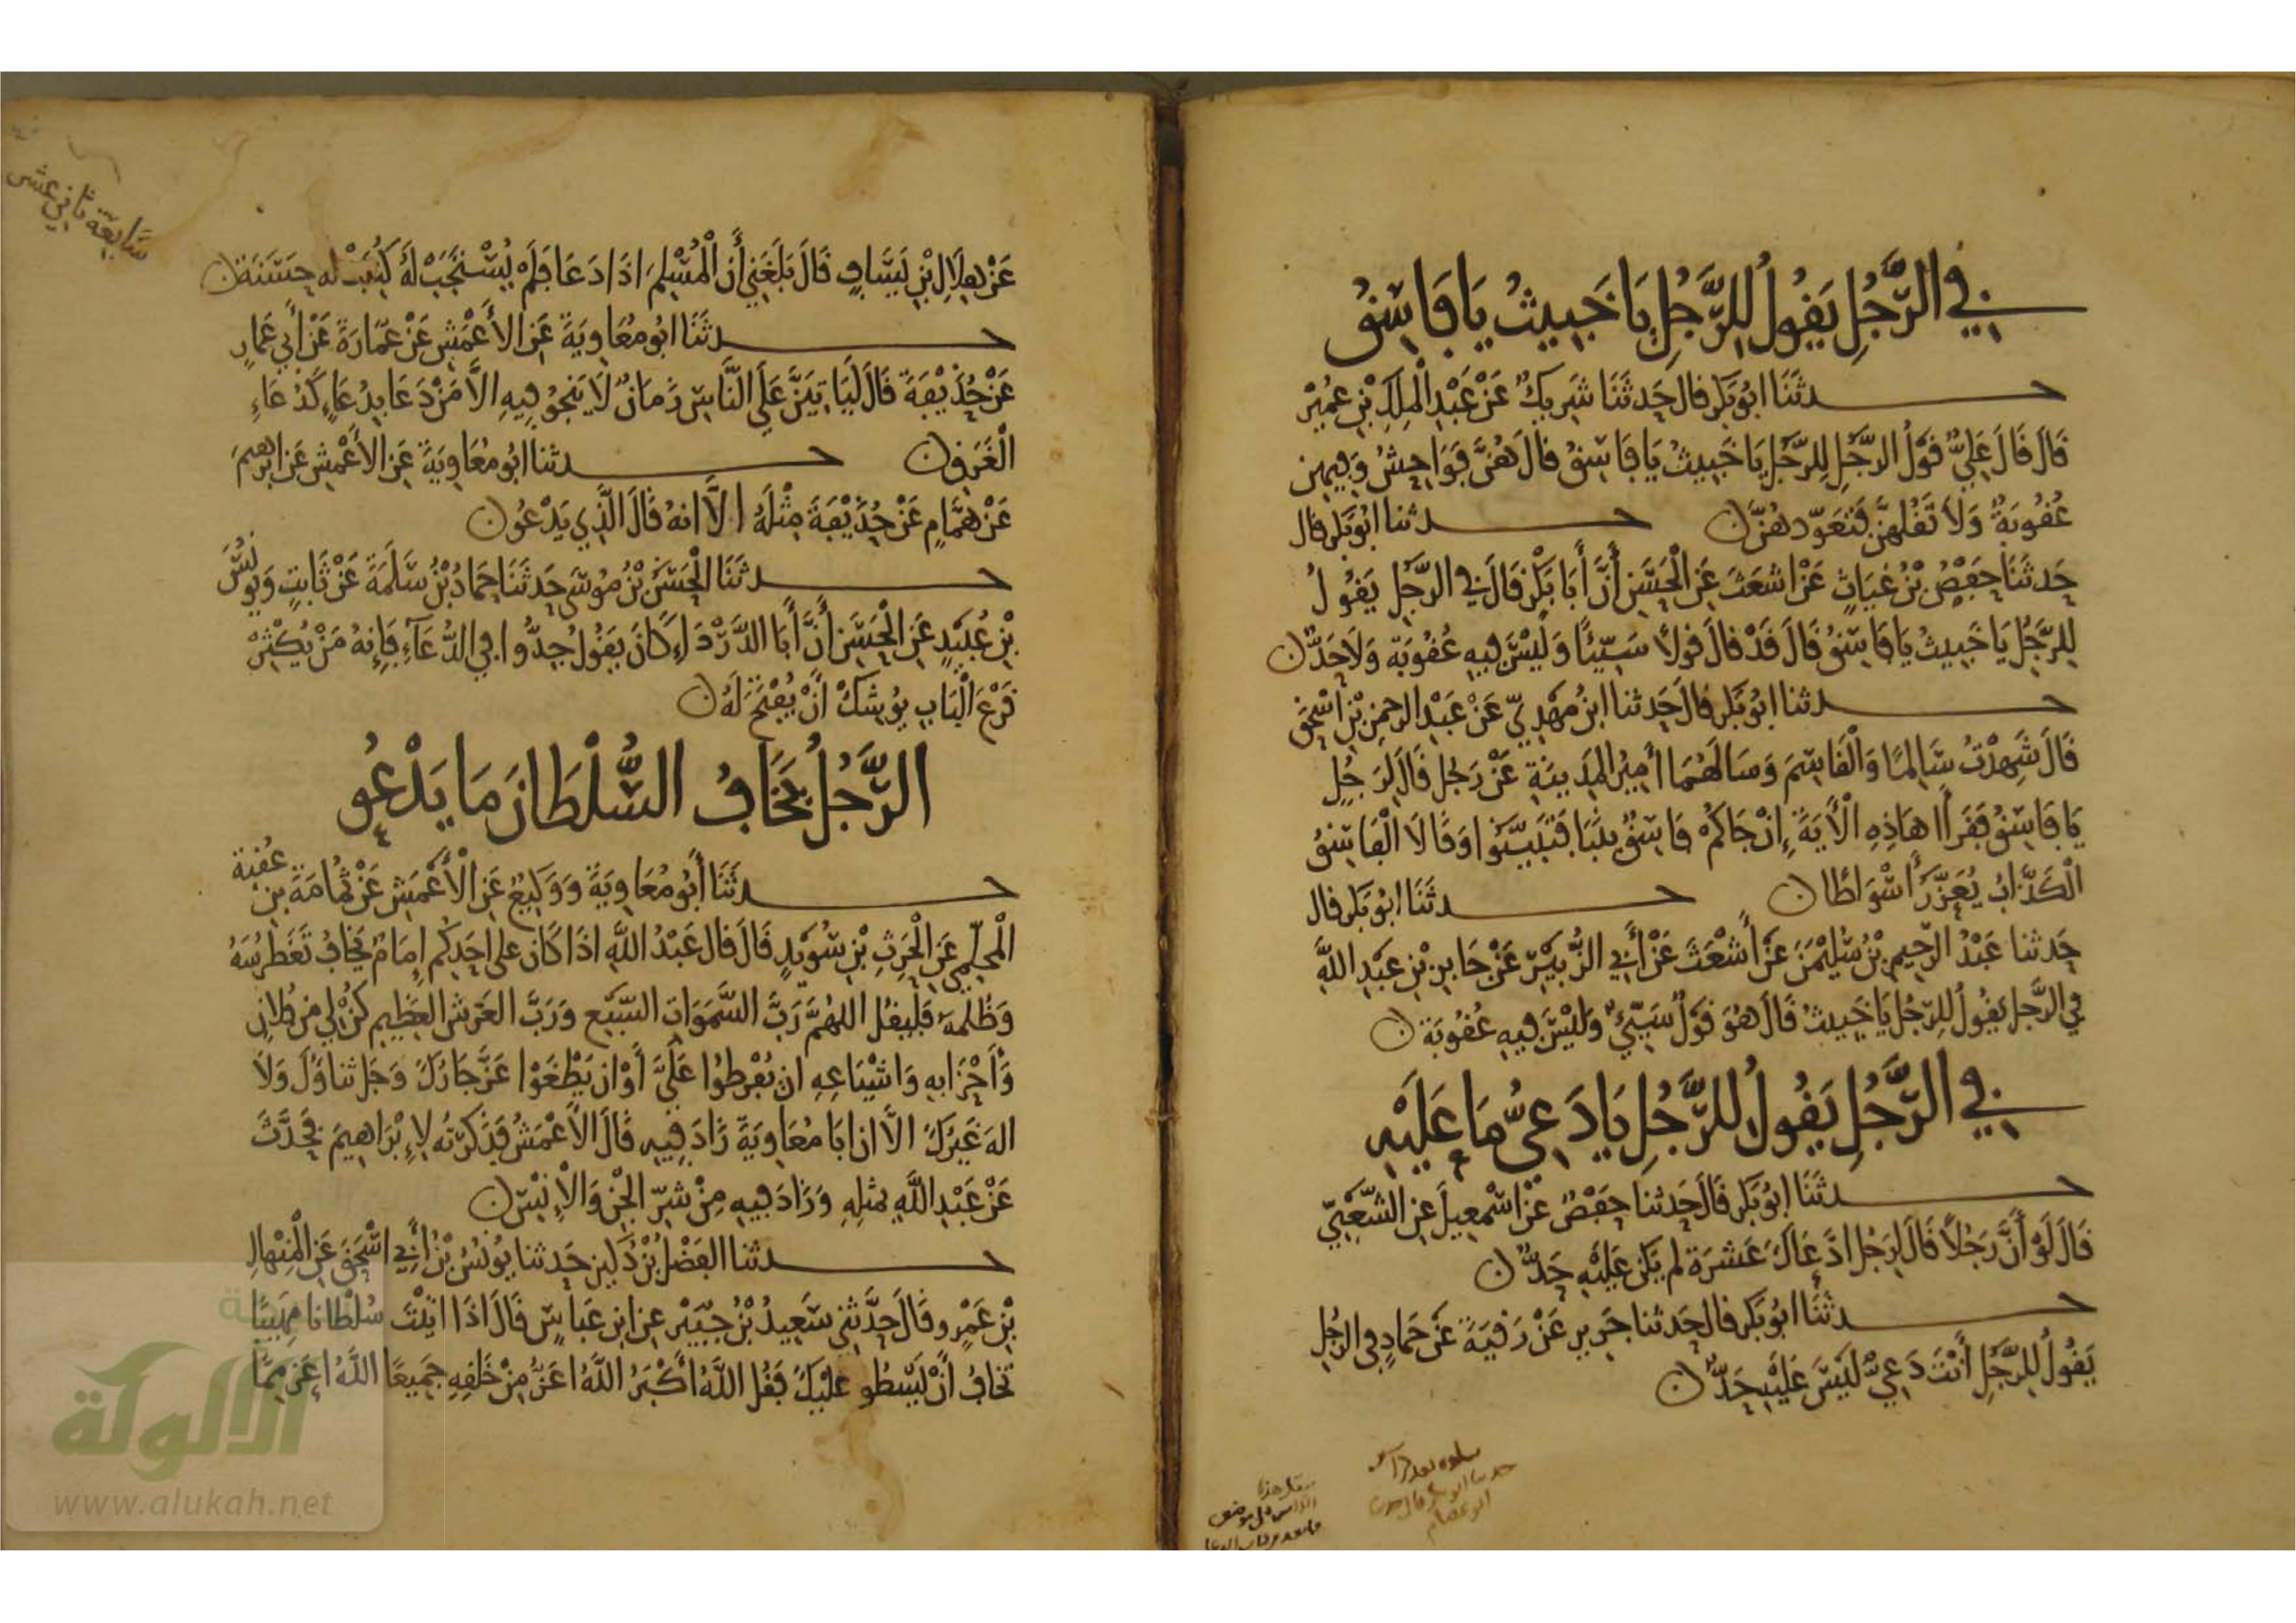 في الرَّجُلِ يَقُولُ لِلرَّجُلِ يَا خَبِيثُ يَا فَاسِقُ
حدثَنَا ابُو بَكرٍ قال حَدثَنَا شَرِيكٌ عَنْ عَبْدِ الْمَلِكِ بْنِ عُمَيْرٍ
قَالَ قَالَ عَلِيٌّ قَوْلُ الرَّجُلِ لِلرَّجُلِ يَا خَبِيثُ يَا فَاسِقُ قَالَ هُنَّ فَوَاحِشُ وَفِيهِن
عُقُوبَةٌ وَلَا تَقُلهنَّ فَتَعَوَّدهُنَّ ن حدثنا ابُو بَكرٍ قال
حَدثَنَا حَفْصُ بْنُ غِيَاثٍ عَنْ اشعَثَ عَنِ الْحَسَنِ أَنَّ أَبَا بَكْرٍ قَالَ فِي الرَّجُلِ يَقُولُ
لِلرَّجُلِ يَا خَبِيثُ يَا فَاسِقُ قَالَ قَدْ قالَ قولًا سَيِّئًا وَلَيْسَ فيهِ عُقُوبَة وَلَا حَدٌّ ن
حدثنا ابُو بَكرٍ قالَ حَدثنا ابنُ مَهْدِيّ عَنْ عَبْدِ الرحمنِ بْنِ اسْحَقَ
قَالَ شَهِدْتُ سَالِمًا وَالْقَاسِمَ وَسَالَهُمَا أمِيرُ المَدِينَةِ عَنْ رَجُلٍ قَالَ لِرَجُلٍ
يَا فَاسِقُ فَقَرَأَا هَاذِهِ الْآيَةَ إِنْ جَاكُمْ فَاسِقٌ بِنَبَا فَتَبَيَّنُوا وَقَالَا الْفَاسِقُ
الْكَذَّابُ يُعَزَّرُ أَسْوَاطًا ن حدثَنَا ابُو بَكرٍ قال
حَدثنا عَبْدُ الرَّحِيمِ بْنُ سُلَيْمَنَ عَنْ أَشْعَثَ عَنْ أَبِي الزُّبَيْرِ عَنْ جَابِرِ بْنِ عَبْدِ اللَّهِ
فِي الرَّجُلِ يَقُولُ لِلرَّجُلِ يَا خَبِيثُ قَالَ هُوَ قَوْلٌ سَيِّئٌ وَلَيْسَ فِيهِ عُقُوبَة ن
في الرَّجُلِ يَقُولُ لِلرَّجُلِ يَا دَعِيُّ مَا عَلَيْهِ
حدثَنَا ابُو بَكرٍ قَالَ حَدثنا حَفْصٌ عَنْ اسْمعِيلَ عَنِ الشَّعْبِيِّ
قَالَ لَوْ أَنَّ رَجُلًا قَالَ لِرَجُلٍ ادَّعَاكَ عَشَرَة لم يَكن عَلَيْهِ حَدٌّ ن
حدثَنَا ابُو بَكرٍ قال حَدثنا جَرِير عَنْ رَقَبَةَ عَنْ حَمادٍ في الرجُلِ
يَقُولُ لِلرَّجُلِ أَنْتَ دَعِيٌّ لَيْسَ عَلَيْهِ حَدٌّ ن
سابعة ثاني عشر
عَنْ هِلَالِ بْنِ يَسَافٍ قَالَ بَلَغَنِي أَن الْمُسْلِمَ اذَا دَعَا فَلَمْ يُسْتَجَبْ لَهُ كُتِبَتْ له حَسَنَة ن
حدثَنَا ابُو مُعَاوِيَةَ عَنِ الأَعْمَشِ عَنْ عُمَارَةَ عَنْ أَبِي عَمَارٍ
عَنْ حُذَيْفَةَ قَالَ لَيَاتِيَنَّ عَلَى النَّاسِ زَمَانٌ لَا يَنجُو فِيهِ الَّا مَنْ دَعَا بِدُعَاءٍ كَدُعَاءِ
الْغَرَقِ ن حدثنا ابُو مُعَاوِيَةَ عَنِ الأَعْمَشِ عَنِ ابْرهِيمَ
عَنْ هَمَّامٍ عَنْ حُذَيْفَةَ مِثْلَهُ الَّا انهُ قَالَ الَّذِي يَدْعُو ن
حدثَنَا الْحَسَنُ بْنُ مُوسَى حَدثَنَا حَمادُ بْنُ سَلَمَةَ عَنْ ثَابِتٍ وَيُونُسَ
بْنِ عُبَيْدٍ عَنِ الْحَسَنِ أَنَّ أَبَا الدَّرْدَاءِ كَانَ يَقُولُ جِدُّوا فِي الدُّعَآءِ فَإِنهُ مَنْ يُكْثِرْ
قَرْعَ الْبَابِ يُوشِكْ أَنْ يُفْتَحَ لَهُ ن
الرَّجُلُ يَخَافُ السُّلْطَانَ مَا يَدْعُو
حدثَنَا أَبُو مُعَاوِيَةَ وَوَكِيعٌ عَنِ الْأَعْمَشِ عَنْ ثُمَامَةَ بنِ عُقْبَة
الْمحلمي عَنِ الْحَرِثِ بْنِ سُوَيْدٍ قَالَ قال عَبْدُ اللَّهِ اذَا كَانَ على احَدِكُم إِمَامٌ يَخَافُ تَغَطرُسَهُ
وَظُلمَهُ فَلْيَقُل اللهُمَّ رَبَّ السَّمَوَاتِ السَّبْعِ وَرَبَّ العَرْشِ العَظِيمِ كُنْ لِي مِن فُلانٍ
وَأَحْزَابِهِ وَاشْيَاعِهِ ان يَفْرطُوا عَلَيَّ أَوْ ان يَطْغَوْا عَزَّ جَارُكَ وَجَلَّ ثناؤُكَ وَلَا
الهَ غَيْرُكَ الَّا ان ابَا مُعَاوِيَةَ زَادَ فِيهِ قَالَ الأَعْمَشُ فَذَكَرْتُه لِإِبْرَاهِيمَ فَحَدَّثَ
عَنْ عَبْدِ اللَّهِ بِمثلِهِ وَزَادَ فِيهِ مِنْ شَرِّ الجِنِّ وَالْإِنْسِ ن
حدثنا الفَضْلُ بْنُ دُكَين حَدثنا يُونُسُ بْنُ أَبِي اسْحَقَ عَنِ الْمِنْهالِ
بْنِ عَمْرٍو قَالَ حَدَّثنِي سَعِيدُ بْنُ جُبَيْرٍ عنِ ابنِ عَبَاسٍ قَالَ اذَا اتَيْتَ سُلْطَانا مَهِيبًا
تَخافُ أَنْ يَسْطُو عَلَيْكَ فَقُل اللَّهُ اكْبَرُ اللَّهُ اعَزُّ مِنْ خَلقِهِ جَمِيعًا اللَّهُ اعَز مِمَّا
الألوكة
www.alukah.net